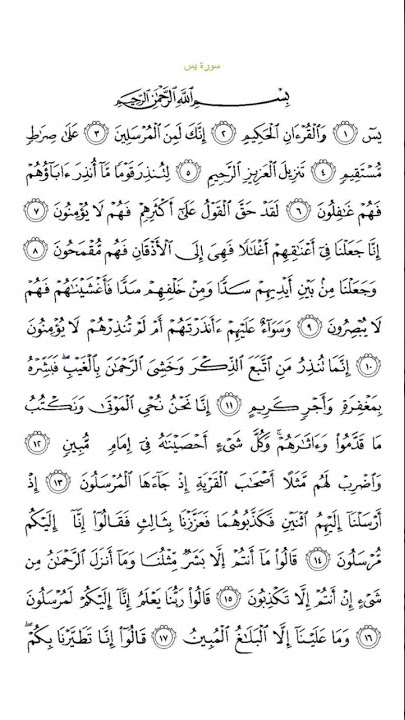 سورة يس
بِسْمِ اللَّهِ الرَّحْمَٰنِ الرَّحِيمِ
يسٓ ۝١ وَالْقُرْءَانِ الْحَكِيمِ ۝٢ إِنَّكَ لَمِنَ الْمُرْسَلِينَ ۝٣ عَلَىٰ صِرَاطٍ
مُّسْتَقِيمٍ ۝٤ تَنزِيلَ الْعَزِيزِ الرَّحِيمِ ۝٥ لِتُنذِرَ قَوْمًا مَّآ أُنذِرَ ءَابَآؤُهُمْ
فَهُمْ غَٰفِلُونَ ۝٦ لَقَدْ حَقَّ الْقَوْلُ عَلَىٰٓ أَكْثَرِهِمْ فَهُمْ لَا يُؤْمِنُونَ ۝٧
إِنَّا جَعَلْنَا فِىٓ أَعْنَٰقِهِمْ أَغْلَٰلًا فَهِىَ إِلَى الْأَذْقَانِ فَهُم مُّقْمَحُونَ ۝٨
وَجَعَلْنَا مِنۢ بَيْنِ أَيْدِيهِمْ سَدًّا وَمِنْ خَلْفِهِمْ سَدًّا فَأَغْشَيْنَٰهُمْ فَهُمْ
لَا يُبْصِرُونَ ۝٩ وَسَوَآءٌ عَلَيْهِمْ ءَأَنذَرْتَهُمْ أَمْ لَمْ تُنذِرْهُمْ لَا يُؤْمِنُونَ
۝١٠ إِنَّمَا تُنذِرُ مَنِ اتَّبَعَ الذِّكْرَ وَخَشِىَ الرَّحْمَٰنَ بِالْغَيْبِ ۖ فَبَشِّرْهُ
بِمَغْفِرَةٍ وَأَجْرٍ كَرِيمٍ ۝١١ إِنَّا نَحْنُ نُحْىِ الْمَوْتَىٰ وَنَكْتُبُ
مَا قَدَّمُوا۟ وَءَاثَٰرَهُمْ ۚ وَكُلَّ شَىْءٍ أَحْصَيْنَٰهُ فِىٓ إِمَامٍ مُّبِينٍ ۝١٢
وَاضْرِبْ لَهُم مَّثَلًا أَصْحَٰبَ الْقَرْيَةِ إِذْ جَآءَهَا الْمُرْسَلُونَ ۝١٣ إِذْ
أَرْسَلْنَآ إِلَيْهِمُ اثْنَيْنِ فَكَذَّبُوهُمَا فَعَزَّزْنَا بِثَالِثٍ فَقَالُوٓا۟ إِنَّآ إِلَيْكُم
مُّرْسَلُونَ ۝١٤ قَالُوا۟ مَآ أَنتُمْ إِلَّا بَشَرٌ مِّثْلُنَا وَمَآ أَنزَلَ الرَّحْمَٰنُ مِن
شَىْءٍ إِنْ أَنتُمْ إِلَّا تَكْذِبُونَ ۝١٥ قَالُوا۟ رَبُّنَا يَعْلَمُ إِنَّآ إِلَيْكُمْ لَمُرْسَلُونَ
۝١٦ وَمَا عَلَيْنَآ إِلَّا الْبَلَٰغُ الْمُبِينُ ۝١٧ قَالُوٓا۟ إِنَّا تَطَيَّرْنَا بِكُمْ ۖ